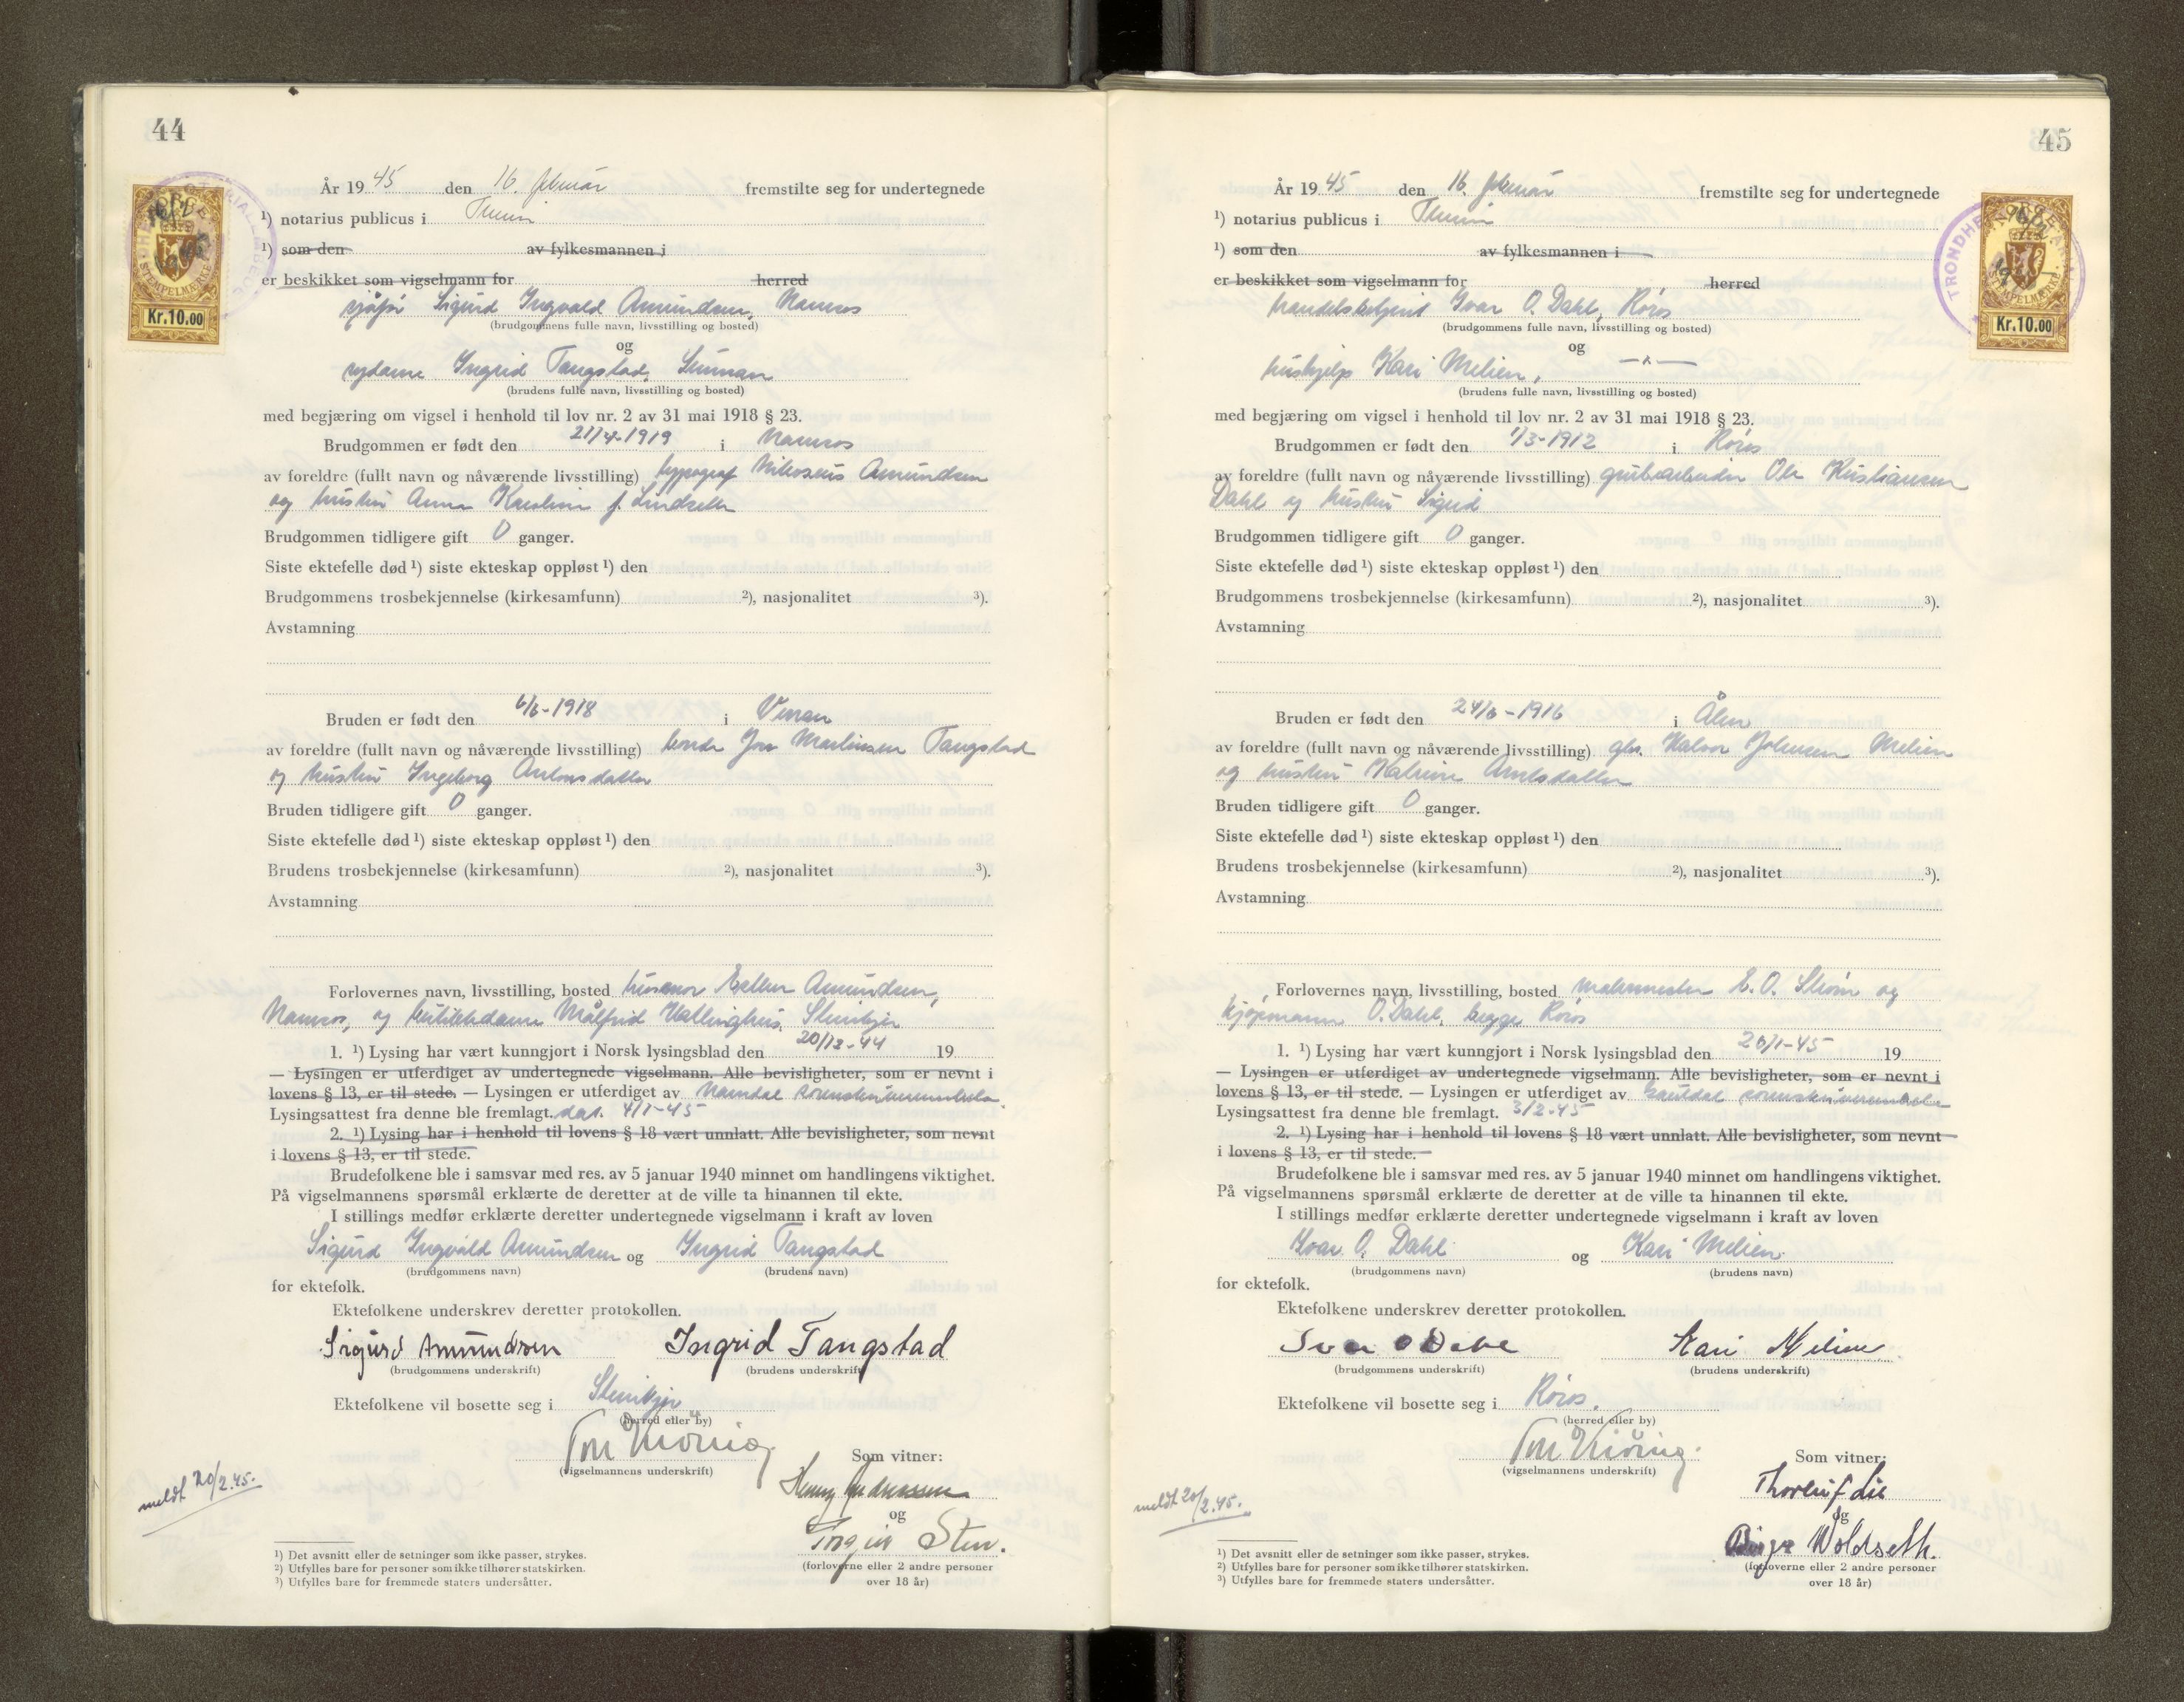 44
År 1945 den 16. februar fremstilte seg for undertegnede
¹) notarius publicus i
¹) som den av fylkesmannen i
er beskikket som vigselmann for herred
sjåfør Sigurd Ingvald Amundsen, Namsos
(brudgommens fulle navn, livsstilling og bosted)
og
sydame Ingrid Tangstad,
(brudens fulle navn, livsstilling og bosted)
med begjæring om vigsel i henhold til lov nr. 2 av 31 mai 1918 § 23.
Brudgommen er født den 21/4-1919 i Namsos
av foreldre (fullt navn og nåværende livsstilling) typograf Amundsen
og hustru Anna Karoline f.
Brudgommen tidligere gift 0 ganger.
Siste ektefelle død ¹) siste ekteskap oppløst ¹) den
Brudgommens trosbekjennelse (kirkesamfunn) ²), nasjonalitet ³).
Avstamning
Bruden er født den 6/6-1918 i Verran
av foreldre (fullt navn og nåværende livsstilling) bonde Jon Martinsen Tangstad
og hustru Ingeborg Antonsdatter
Bruden tidligere gift 0 ganger.
Siste ektefelle død ¹) siste ekteskap oppløst ¹) den
Brudens trosbekjennelse (kirkesamfunn) ²), nasjonalitet ³).
Avstamning
Forlovernes navn, livsstilling, bosted husmor Amundsen,
Namsos, og butikkdame Målfrid Steinkjer
1. ¹) Lysing har vært kunngjort i Norsk lysingsblad den 20/12-44 19
— Lysingen er utferdiget av undertegnede vigselmann. Alle bevisligheter, som er nevnt i
lovens § 13, er til stede. — Lysingen er utferdiget av Namdal sorenskriverembete.
Lysingsattest fra denne ble fremlagt. dat. 4/1-45
2. ¹) Lysing har i henhold til lovens § 18 vært unnlatt. Alle bevisligheter, som nevnt
i lovens § 13, er til stede.
Brudefolkene ble i samsvar med res. av 5 januar 1940 minnet om handlingens viktighet.
På vigselmannens spørsmål erklærte de deretter at de ville ta hinannen til ekte.
I stillings medfør erklærte deretter undertegnede vigselmann i kraft av loven
Sigurd Ingvald Amundsen og Ingrid Tangstad
(brudgommens navn) (brudens navn)
for ektefolk.
Ektefolkene underskrev deretter protokollen.
Sigurd Amundsen Ingrid Tangstad
(brudgommens underskrift) (brudens underskrift)
Ektefolkene vil bosette seg i Steinkjer
(herred eller by)
(vigselmannens underskrift)
Som vitner:
Henry Andreassen
og
Sten.
(forloverne eller 2 andre personer
over 18 år)
meldt 20/2.45.
¹) Det avsnitt eller de setninger som ikke passer, strykes.
²) Utfylles bare for personer som ikke tilhører statskirken.
³) Utfylles bare for fremmede staters undersåtter.
NORGE
STEMPELMÆRKE
Kr.10.00
45
År 1945 den 16. februar fremstilte seg for undertegnede
¹) notarius publicus i
¹) som den av fylkesmannen i
er beskikket som vigselmann for herred
handelsbetjent Ivar O. Dahl, Røros
(brudgommens fulle navn, livsstilling og bosted)
og
hushjelp Kari Melien, —"—
(brudens fulle navn, livsstilling og bosted)
med begjæring om vigsel i henhold til lov nr. 2 av 31 mai 1918 § 23.
Brudgommen er født den 1/3-1912 i Røros
av foreldre (fullt navn og nåværende livsstilling) grubearbeider Ole Kristiansen
Dahl og hustru Sigrid
Brudgommen tidligere gift 0 ganger.
Siste ektefelle død ¹) siste ekteskap oppløst ¹) den
Brudgommens trosbekjennelse (kirkesamfunn) ²), nasjonalitet ³).
Avstamning
Bruden er født den 24/6-1916 i Ålen
av foreldre (fullt navn og nåværende livsstilling) gbr. Halvor Johnsen Melien
og hustru Katrine Arntsdatter
Bruden tidligere gift 0 ganger.
Siste ektefelle død ¹) siste ekteskap oppløst ¹) den
Brudens trosbekjennelse (kirkesamfunn) ²), nasjonalitet ³).
Avstamning
Forlovernes navn, livsstilling, bosted malermester E. O. Strøm og
kjøpmann O. Dahl, begge Røros
1. ¹) Lysing har vært kunngjort i Norsk lysingsblad den 20/1-45 19
— Lysingen er utferdiget av undertegnede vigselmann. Alle bevisligheter, som er nevnt i
lovens § 13, er til stede. — Lysingen er utferdiget av Gauldal sorenskriverembete
Lysingsattest fra denne ble fremlagt. 3/2-45
2. ¹) Lysing har i henhold til lovens § 18 vært unnlatt. Alle bevisligheter, som nevnt
i lovens § 13, er til stede.
Brudefolkene ble i samsvar med res. av 5 januar 1940 minnet om handlingens viktighet.
På vigselmannens spørsmål erklærte de deretter at de ville ta hinannen til ekte.
I stillings medfør erklærte deretter undertegnede vigselmann i kraft av loven
Ivar O. Dahl og Kari Melien
(brudgommens navn) (brudens navn)
for ektefolk.
Ektefolkene underskrev deretter protokollen.
Ivar O Dahl Kari Melien
(brudgommens underskrift) (brudens underskrift)
Ektefolkene vil bosette seg i Røros.
(herred eller by)
(vigselmannens underskrift)
Som vitner:
Thorleif Lie
og
Birger Woldseth.
(forloverne eller 2 andre personer
over 18 år)
meldt 20/2.45.
¹) Det avsnitt eller de setninger som ikke passer, strykes.
²) Utfylles bare for personer som ikke tilhører statskirken.
³) Utfylles bare for fremmede staters undersåtter.
NORGE
STEMPELMÆRKE
Kr.10.00